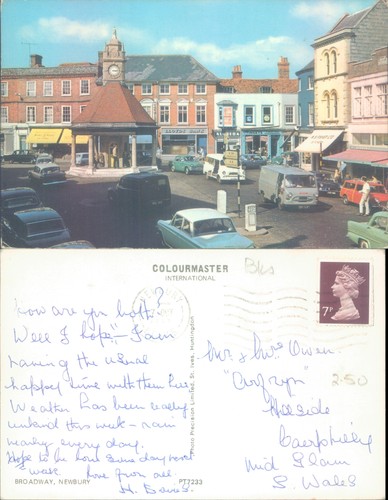 COLOURMASTER
INTERNATIONAL
How are you both?
Well I hope - I am
having the usual
happy time with them here
Weather has been really
unkind this week - rain
nearly every day.
Hope to be home Sunday
week. Love from all.
H. Davies.
BROADWAY, NEWBURY
PT7233
Photo Precision Limited, St. Ives, Huntingdon
Bks
7P
Mr & Mrs Owen.
2-50
Hillside
Caerphilly
Mid Glam
S. Wales